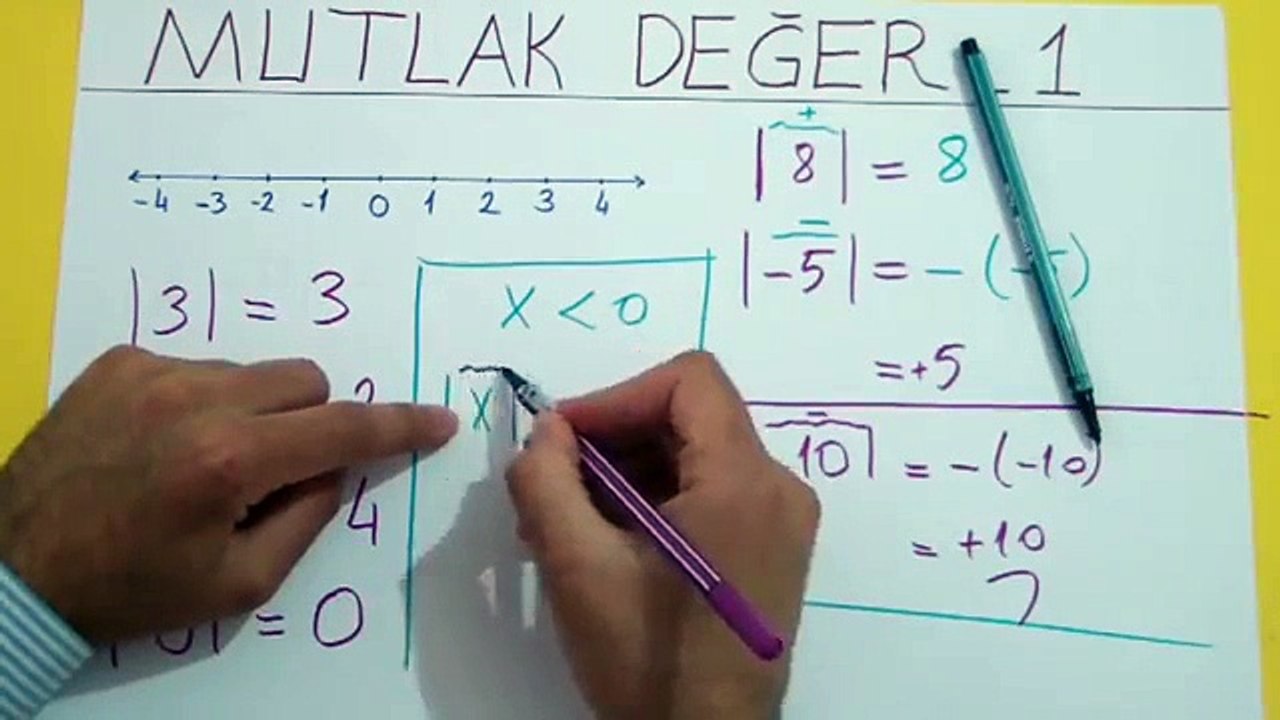 MUTLAK DEĞER 1
-4 -3 -2 -1 0 1 2 3 4
|3| = 3
4
= 0
x < 0
|x|
+
|8| = 8
-
|-5| = -(-5)
= +5
-
10| = -(-10)
= +10